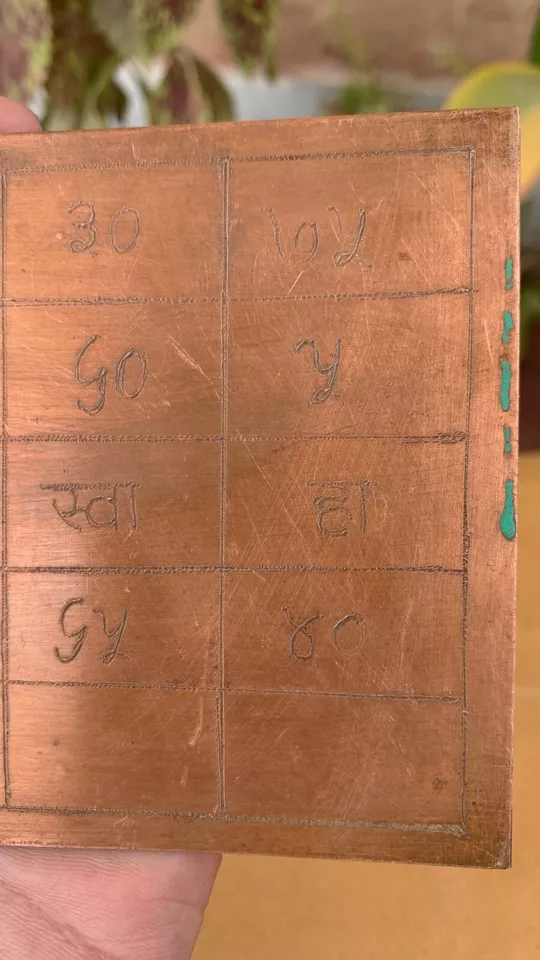 ३० ७५
६० ५
स्वा हा
६५ ४०